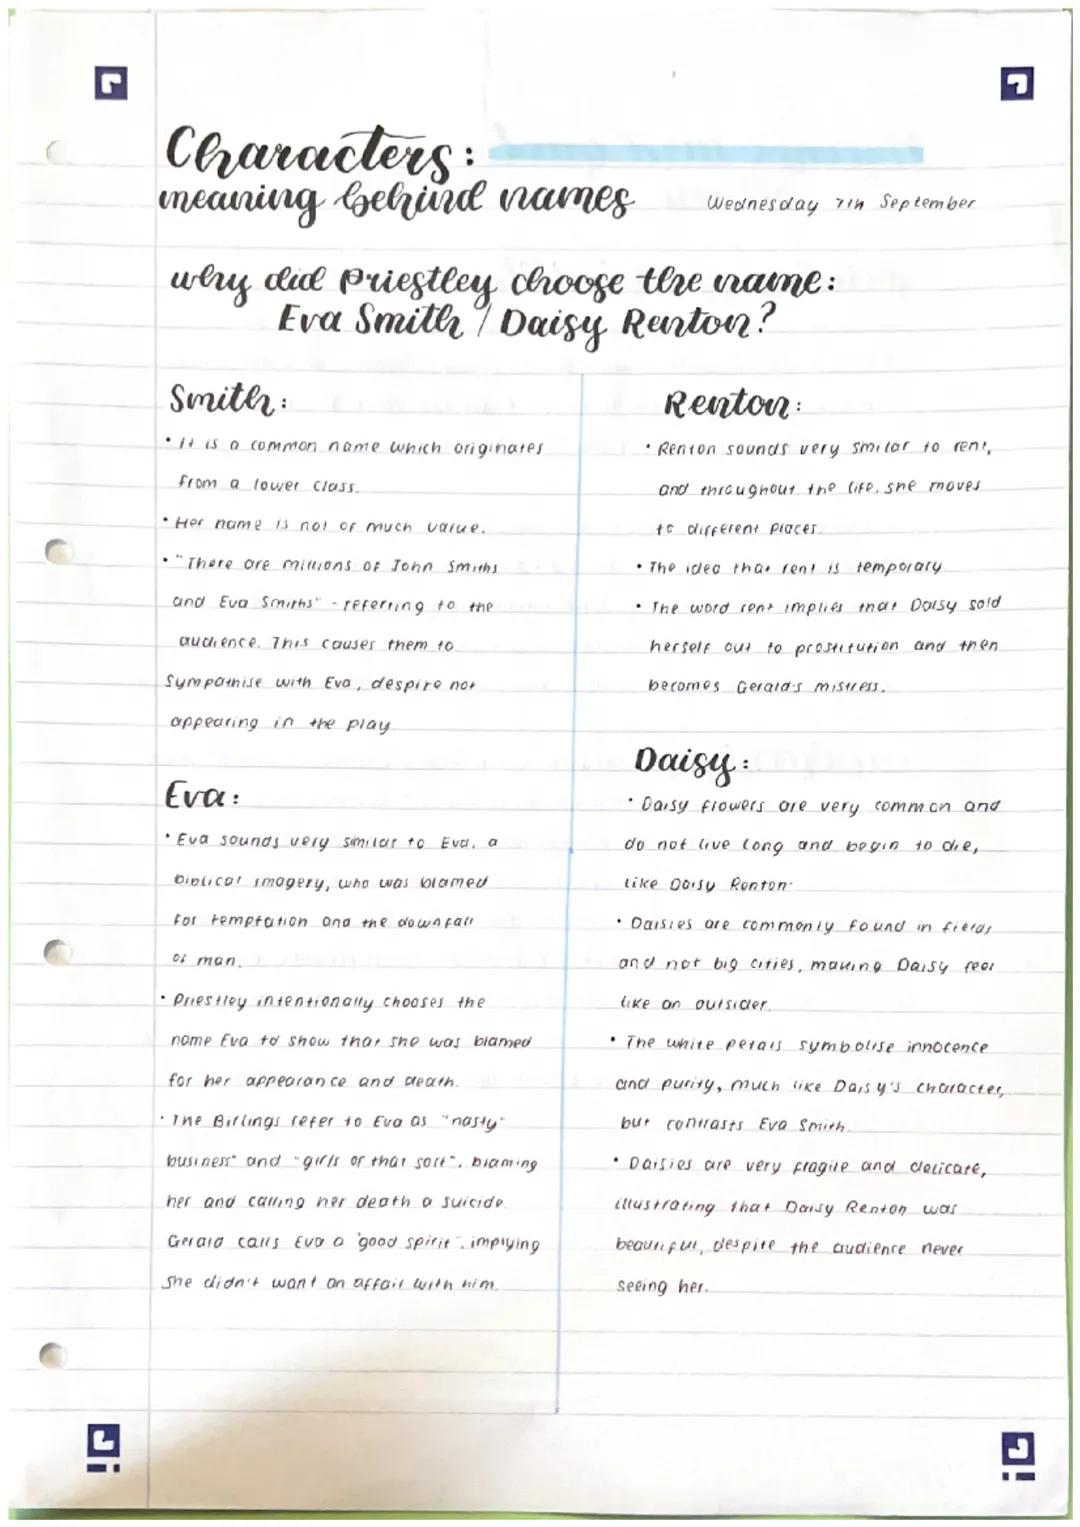 Characters:
meaning behind names
Wednesday 7th September
why did Priestley choose the name:
Eva Smith / Daisy Renton?
Smith:
• It is a common name which originates
from a lower class.
• Her name is not of much value.
• "There are millions of John Smiths
and Eva Smiths" - referring to the
audience. This causes them to
Sympathise with Eva, despite not
appearing in the play.
Eva:
• Eva sounds very similar to Eva, a
biblical imagery, who was blamed
for temptation and the downfall
of man.
• Priestley intentionally chooses the
name Eva to show that she was blamed
for her appearance and death.
• The Birlings refer to Eva as "nasty"
business" and "girls of that sort", blaming
her and calling her death a suicide.
Gerald calls Eva a "good spirit", implying
she didn't want an affair with him.
Renton:
• Renton sounds very smilar to rent,
and throughout the life, she moves
to different places.
• The idea that rent is temporary
• The word rent implies that Daisy sold
herself out to prostitution and then
becomes Gerald's mistress.
Daisy:
• Daisy flowers are very common and
do not live long and begin to die,
like Daisy Renton.
• Daisies are commonly found in fields
and not big cities, making Daisy feel
like an outsider.
• The white petals symbolise innocence
and purity, much like Daisy's character,
but contrasts Eva Smith.
• Daisies are very fragile and delicate,
illustrating that Daisy Renton was
beautiful, despite the audience never
seeing her.